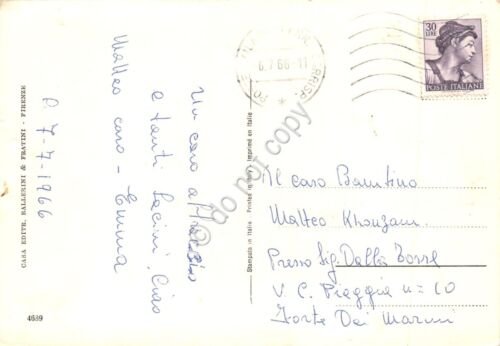 Un caro abbraccio
e tanti bacini. Ciao
Matteo caro - Emma
7-7-1966
CASA EDITR. BALLERINI & FRATINI - FIRENZE
4689
Stampato in Italie Printed in Italy Imprimé en Italie
6.7.66-11
30
LIRE
POSTE ITALIANE
Al caro Bambino
Matteo
Presso Sig. Dalla Borre
V. C. Piaggia n= 10
Forte Dei Marmi
do not copy